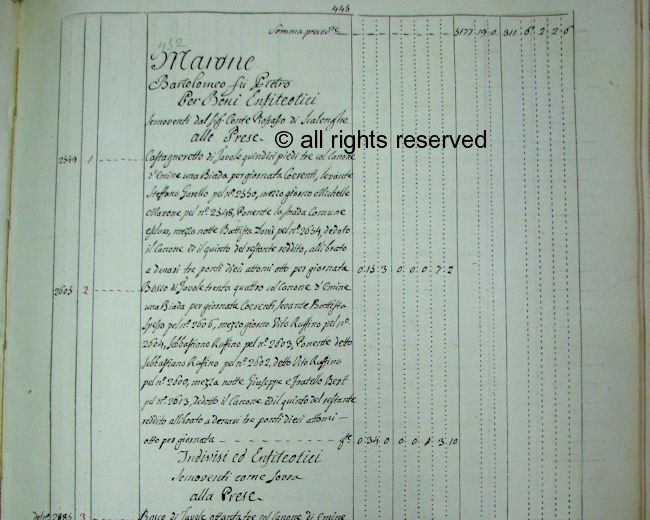 445
Somma preced.te 5177 19 0 311 6 2 2 0
432
Marone
Bartolomeo fù Pietro
Per Beni Enfiteotici
Semoventi dal Sig.r Conte Rofaso di Scalenghe
alle Prese
© all rights reserved
2549 1 Castagneretto di Tavole quindici piedi tre col Canone
d'Emine una Biada per giornata Coerenti, levante
Steffano Gorello pel n.o 2550, mezzo giorno Michelle
Marone pel n.o 2548, Ponente la strada Comune
mezzo notte Battista pel n.o 2654, dedoto
il Canone ed il quinto del restante reddito, allibrato
a denari tre ponti dieci attomi otto per giornata 0 15 3 0 0 0 7 2
2605 2 Bosco di Tavole trenta quattro col Canone d'Emine
una Biada per giornata Coerenti, levante Battista
Spesso pel n.o 2606, mezzo giorno Vito Ruffino pel n.o
2604, Sebbastiano Ruffino pel n.o 2603, Ponente detto
Sebbastiano Ruffino pel n.o 2602, detto Vito Ruffino
pel n.o 2600, mezza notte Giuseppe e Fratello Bert
pel n.o 2613, dedotto il Canone ed il quinto del restante
reddito allibrato a denari tre ponti dieci attomi
otto per giornata 0 34 0 0 0 1 3 10
Indivisi ed Enfiteotici
Semoventi come sovra
alla Prese
2885 3 Bosco di Tavole ottanta tre col Canone di Emine